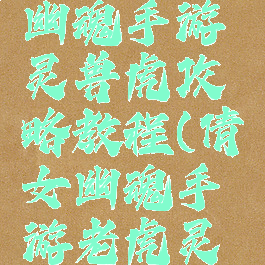 幽魂手游
灵兽虎攻
略教程(倩
女幽魂手
游老虎灵